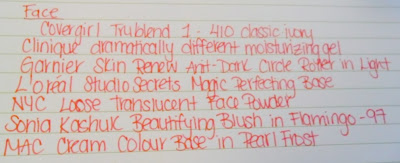 Face
Covergirl Trublend 1 - 410 classic ivory
Clinique dramatically different moisturizing gel
Garnier Skin Renew Anti-Dark Circle Roller in Light
L'oréal Studio Secrets Magic Perfecting Base
NYC Loose Translucent Face Powder
Sonia Kashuk Beautifying Blush in Flamingo - 97
MAC Cream Colour Base in Pearl Frost